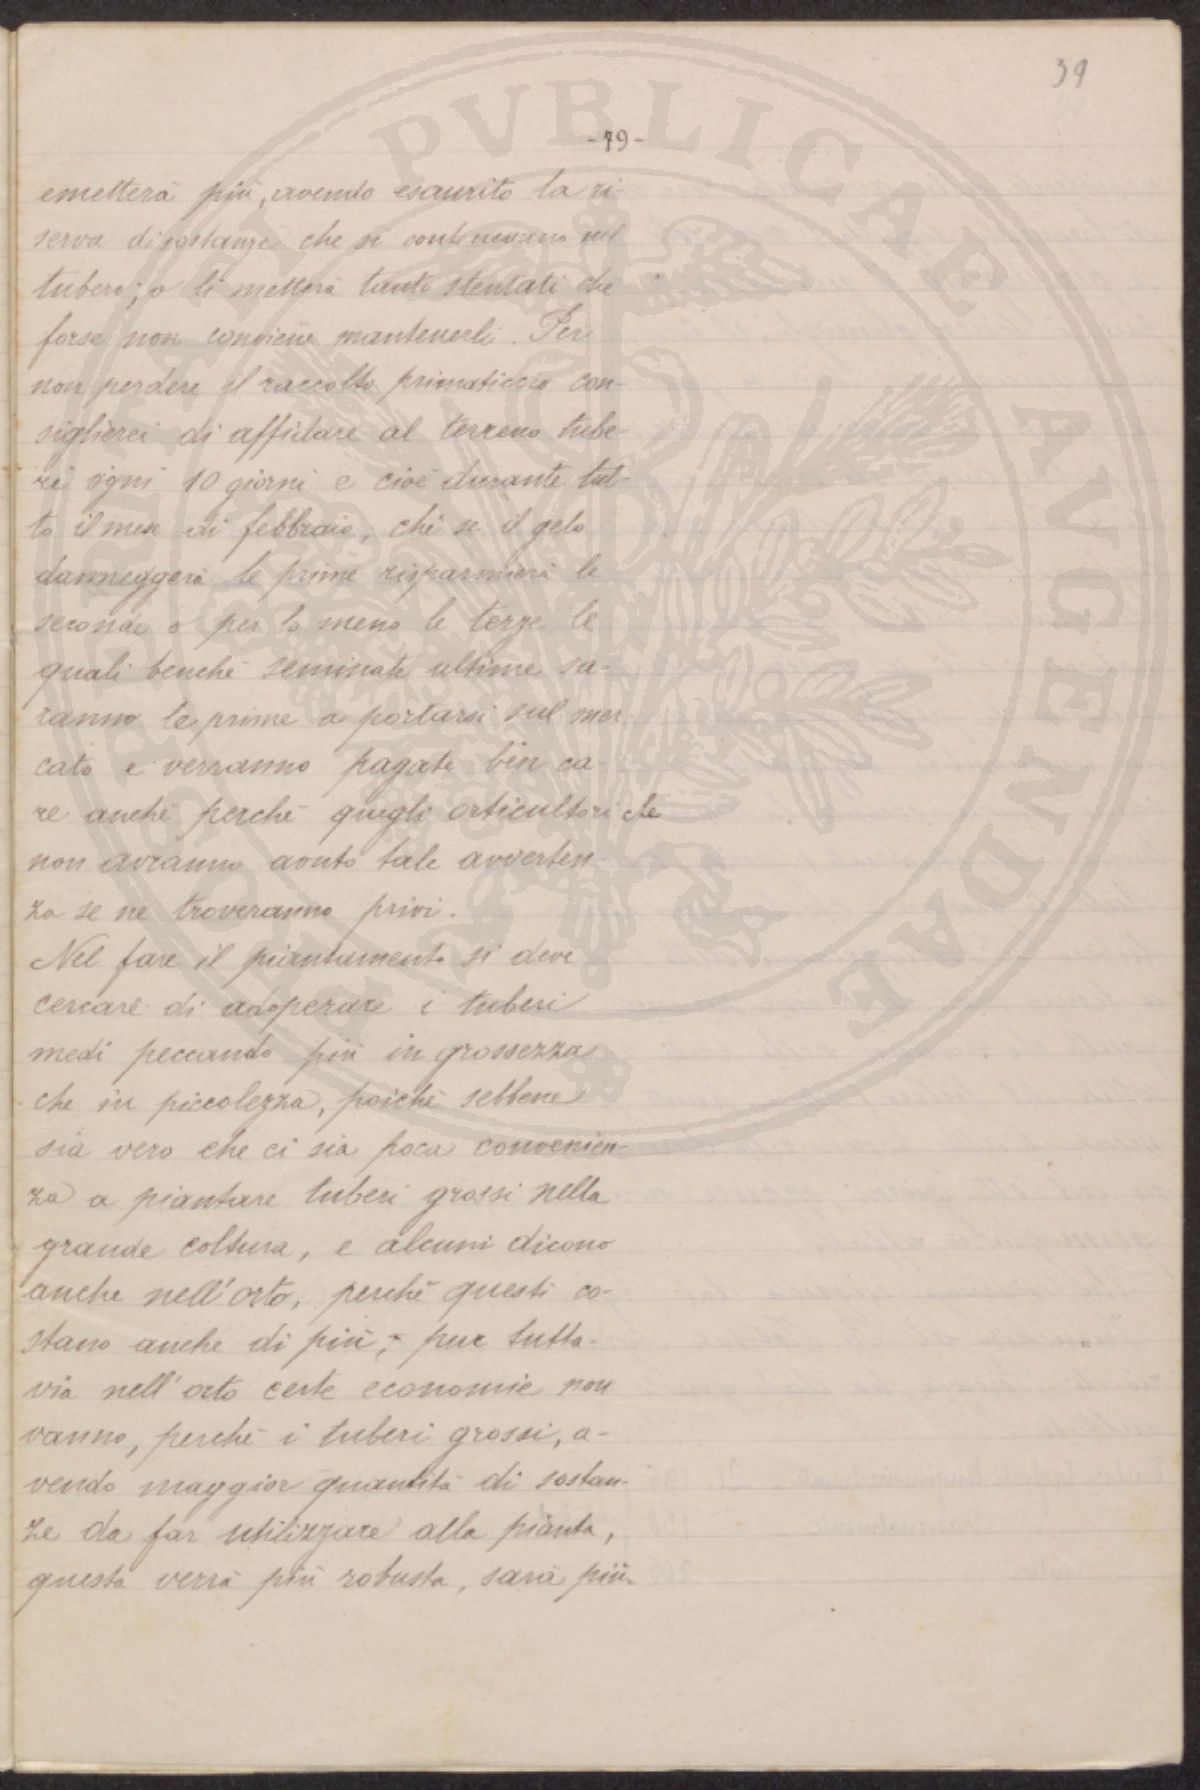 39
-19-
emetterà più, avendo esaurito la ri-
serva di sostanze che si contenevano nel
tubero; o li metterà tanto stentati che
forse non conviene mantenerli. Per
non perdere il raccolto primaticcio con-
siglierei di affidare al terreno tube-
ri ogni 10 giorni e cioè durante tut-
to il mese di febbraio, chè se il gelo
danneggerà le prime risparmierà le
seconde o per lo meno le terze le
quali benchè seminate ultime sa-
ranno le prime a portarsi sul mer-
cato e verranno pagate ben ca-
re anche perchè quegli orticultori che
non avranno avuto tale avverten-
za se ne troveranno privi.
Nel fare il piantamento si deve
cercare di adoperare i tuberi
medi peccando più in grossezza
che in piccolezza, poichè sebbene
sia vero che ci sia poca convenien-
za a piantare tuberi grossi nella
grande coltura, e alcuni dicono
anche nell'orto, perchè questi co-
stano anche di più; pur tutta-
via nell'orto certe economie non
vanno, perchè i tuberi grossi, a-
vendo maggior quantità di sostan-
ze da far utilizzare alla pianta,
questa verrà più robusta, sarà più
PVBLICAE AVGENDAE